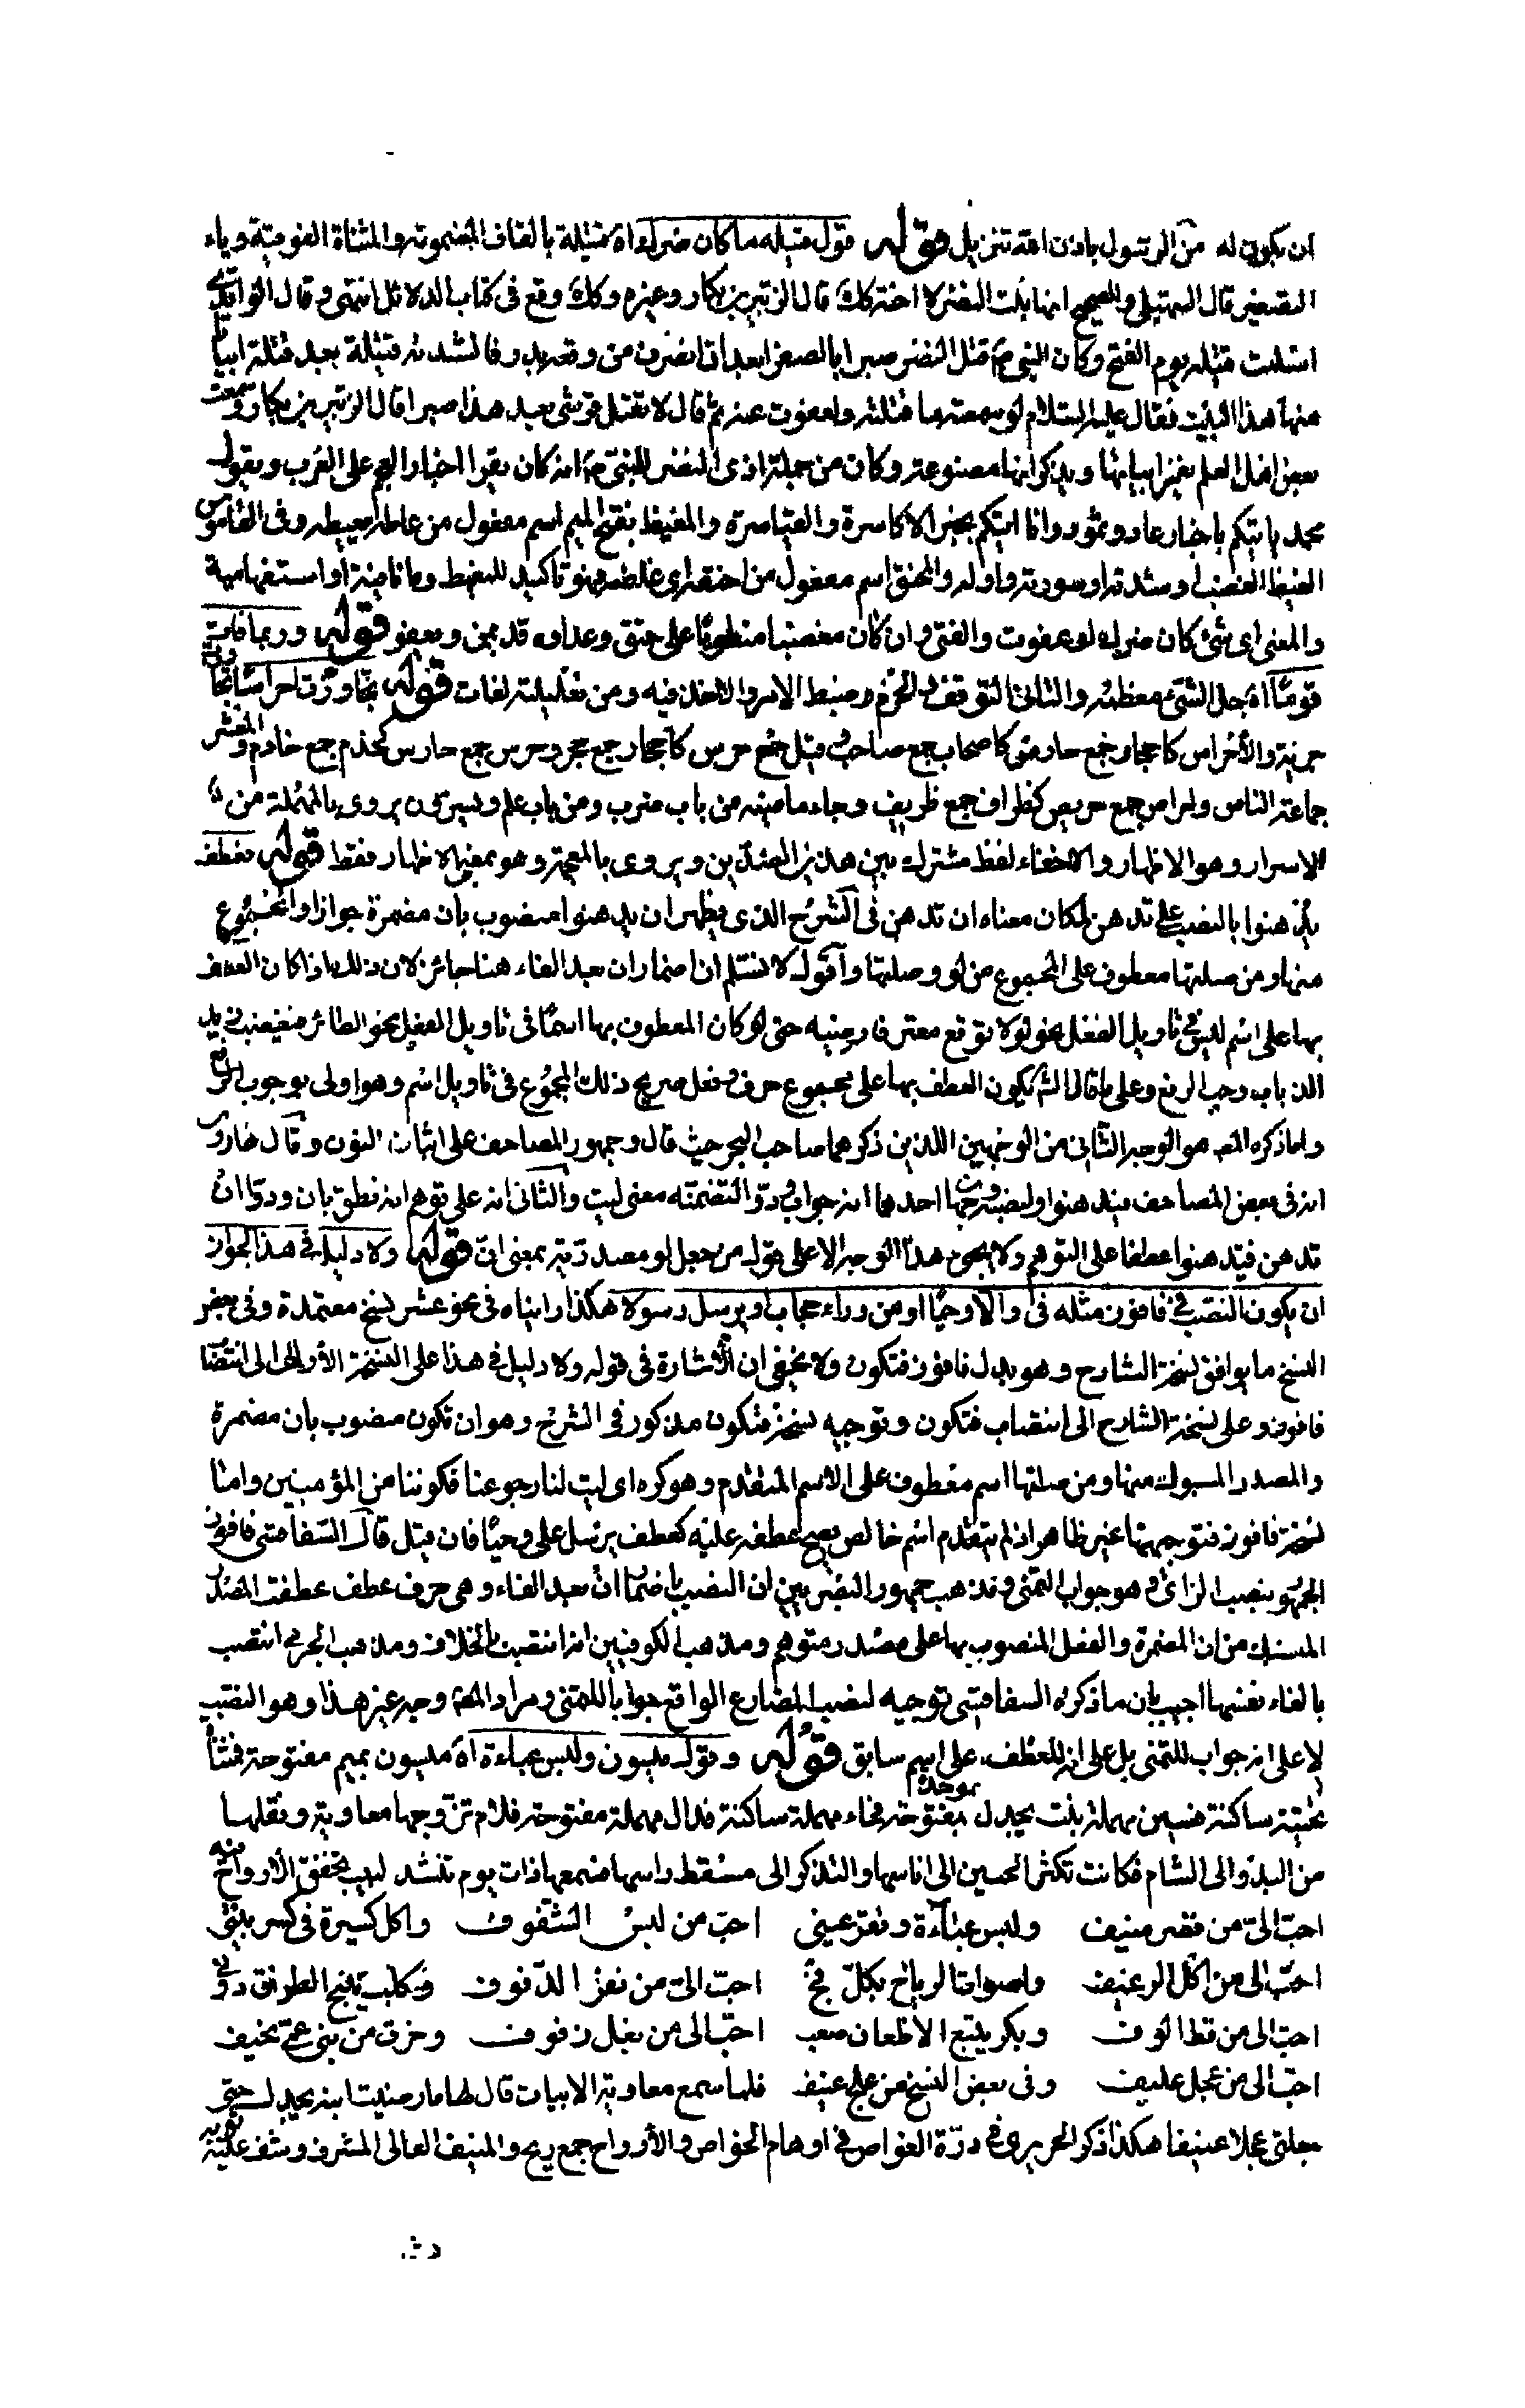 ان يكون له من الرسول باذن الله تنزيل قوله قول قتيله ما كان ضرك اه قتيلة بالقاف المضمومة والمثناة الفوقية وياء
التصغير قال السهيلي والصحيح انها بنت النضر لا اخته كك قال الزبير بن بكار وغيره وكك وقع في كتاب الدلائل انتهى وقال الواقدي
اسلمت قتيله يوم الفتح وكان النبي ص قتل النضر صبرا بالصفراء بعد ان انصرف من وقعة بدر فانشدته قتيلة بعد قتله ابياتا
منها هذا البيت فقال عليه السلام لو سمعته ما قتلته ولعفوت عنه ثم قال لا تقتل قرشي بعد هذا صبرا قال الزبير بن بكار وسمعت
بعض اهل العلم يغمز ابياتها ويذكر انها مصنوعة وكان من جملة اذى النضر للنبي ص انه كان يقرا اخبار العجم على العرب ويقول
محمد ياتيكم باخبار عاد وثمود وانا اتيكم بخبر الاكاسرة والقياصرة والمغيظ بفتح الميم اسم مفعول من غاظه يغيظه وفي القاموس
الغيظ الغضب او شدته او سورته واوله والمحنق اسم مفعول من احنقه اى غاظه فهو تاكيد للمغيظ وما نافية او استفهامية
والمعنى اى شئ كان ضرك لو عفوت والفتى وان كان مغضبا منطويا على حنق وعداوه قد يمن ويعفو قوله وربما فات
قوما اه جل الشئ معظمه والتاني التوقف والحزم ضبط الامر والاخذ فيه ومن تعليلية لغات قوله تجاوزت احراسا اه
جمع حارس كاصحاب جمع صاحب وقيل جمع حرس كاحجار جمع حجر وحرس جمع حارس كخدم جمع خادم والمعشر
جماعة الناس وحراص جمع حريص كظراف جمع ظريف وجاء ماضيه من باب ضرب ومن باب علم ويسرون يروى بالمهملة من
الاسرار وهو الاظهار والاخفاء لفظ مشترك بين هذين الضدين ويروى بالمعجمة وهو بمعنى الاظهار فقط قوله فعطف
يدهنوا بالنصب على تدهن لما كان معناه ان تدهن في الشرح الذي يظهر ان يدهنوا منصوب بان مضمرة جوازا والمجموع
منها ومن صلتها معطوف على المجموع من لو وصلتها واقول لا نسلم ان اضمار ان بعد الفاء هنا جائز لان ذلك اذا كان العطف
بها على اسم ليس في تاويل الفعل نحو لولا توقع معتر فارضيه حتى لو كان المعطوف بها اسما في تاويل الفعل نحو الطائر فيغضب زيد
الذباب وجب الرفع وعلى ما قال الش يكون العطف بها على مجموع حرف وفعل صريح ذلك المجموع في تاويل اسم وهو اولى بوجوب الرفع
واما ذكره المص هو الوجه الثاني من الوجهين اللذين ذكرهما صاحب البحر حيث قال وجمهور المصاحف على اثبات النون وقال هارون
انه في بعض المصاحف فيدهنوا ولنصبه وجهان احدهما انه جواب ودوا لتضمنه معنى ليت والثاني انه على توهم انه نطق بان ودوا ان
تدهن فيدهنوا عطفا على التوهم ولا يجئ هذا الوجه الا على قول من جعل لو مصدرية بمعنى ان قوله ولا دليل في هذا لجواز
ان يكون النصب في فافوز مثله في والا وحيا او من وراء حجاب او يرسل رسولا هكذا رايناه في نحو عشر نسخ معتمدة وفي بعض
النسخ ما يوافق نسخة الشارح وهو بدل فافوز فتكون ولا يخفى ان الاشارة في قوله ولا دليل في هذا على النسخة الاولى الى انتصاب
فافوز وعلى نسخة الشارح الى انتصاب فتكون وتوجيه نسخة فتكون مذكور في الشرح وهو ان تكون منصوب بان مضمرة
والمصدر المسبوك منها ومن صلتها اسم معطوف على الاسم المتقدم وهو كره اى ليت لنا رجوعنا فكوننا من المؤمنين واما
نسخة فافوز فتوجيهها غير ظاهر اذ لم يتقدم اسم خالص يصح عطفه عليه كعطف يرسل على وحيا فان قيل قال السفاقسي فافوز
الجمهور بنصب الزاي وهو جواب التمني ومذهب جمهور البصريين ان النصب باضمار ان بعد الفاء وهي حرف عطف عطفت المصدر
المنسبك من ان المضمرة والفعل المنصوب بها على مصدر متوهم ومذهب الكوفيين انه انتصب بالخلاف ومذهب الجرمي انتصب
بالفاء نفسها اجيب بان ما ذكره السفاقسي توجيه لنصب المضارع الواقع جوابا للتمني ومراد المص وجه غير هذا وهو النصب
لا على انه جواب للتمني بل على انه للعطف على اسم سابق قوله وقول ميسون ولبس عباءة اه ميسون بميم مفتوحة فمثناة
تحتية ساكنة فسين مهملة بنت بحدل بموحدة مفتوحة فحاء مهملة ساكنة فدال مهملة مفتوحة فلام تزوجها معاوية ونقلها
من البدو الى الشام فكانت تكثر الحنين الى اناسها والتذكر الى مسقط راسها فسمعها ذات يوم تنشد لبيت تخفق الارواح فيه
احب الي من قصر منيف ولبس عباءة وتقر عيني احب من لبس الشفوف واكل كسيرة في كسر بيتي
احب الي من اكل الرغيف واصوات الرياح بكل فج احب الي من نقر الدفوف وكلب ينبح الطراق دوني
احب الي من قط الوف وبكر يتبع الاظعان صعب احب الي من بغل زفوف وخرق من بني عمي نحيف
احب الي من عجل عليف وفي بعض النسخ من علج عنيف فلما سمع معاوية الابيات قال لها ما رضيت ابنة بحدل حتى
جعلتني علجا عنيفا هكذا ذكر الحريري في درة الغواص في اوهام الخواص والارواح جمع ريح والمنيف العالى المشرف وشف عليه ثوبه